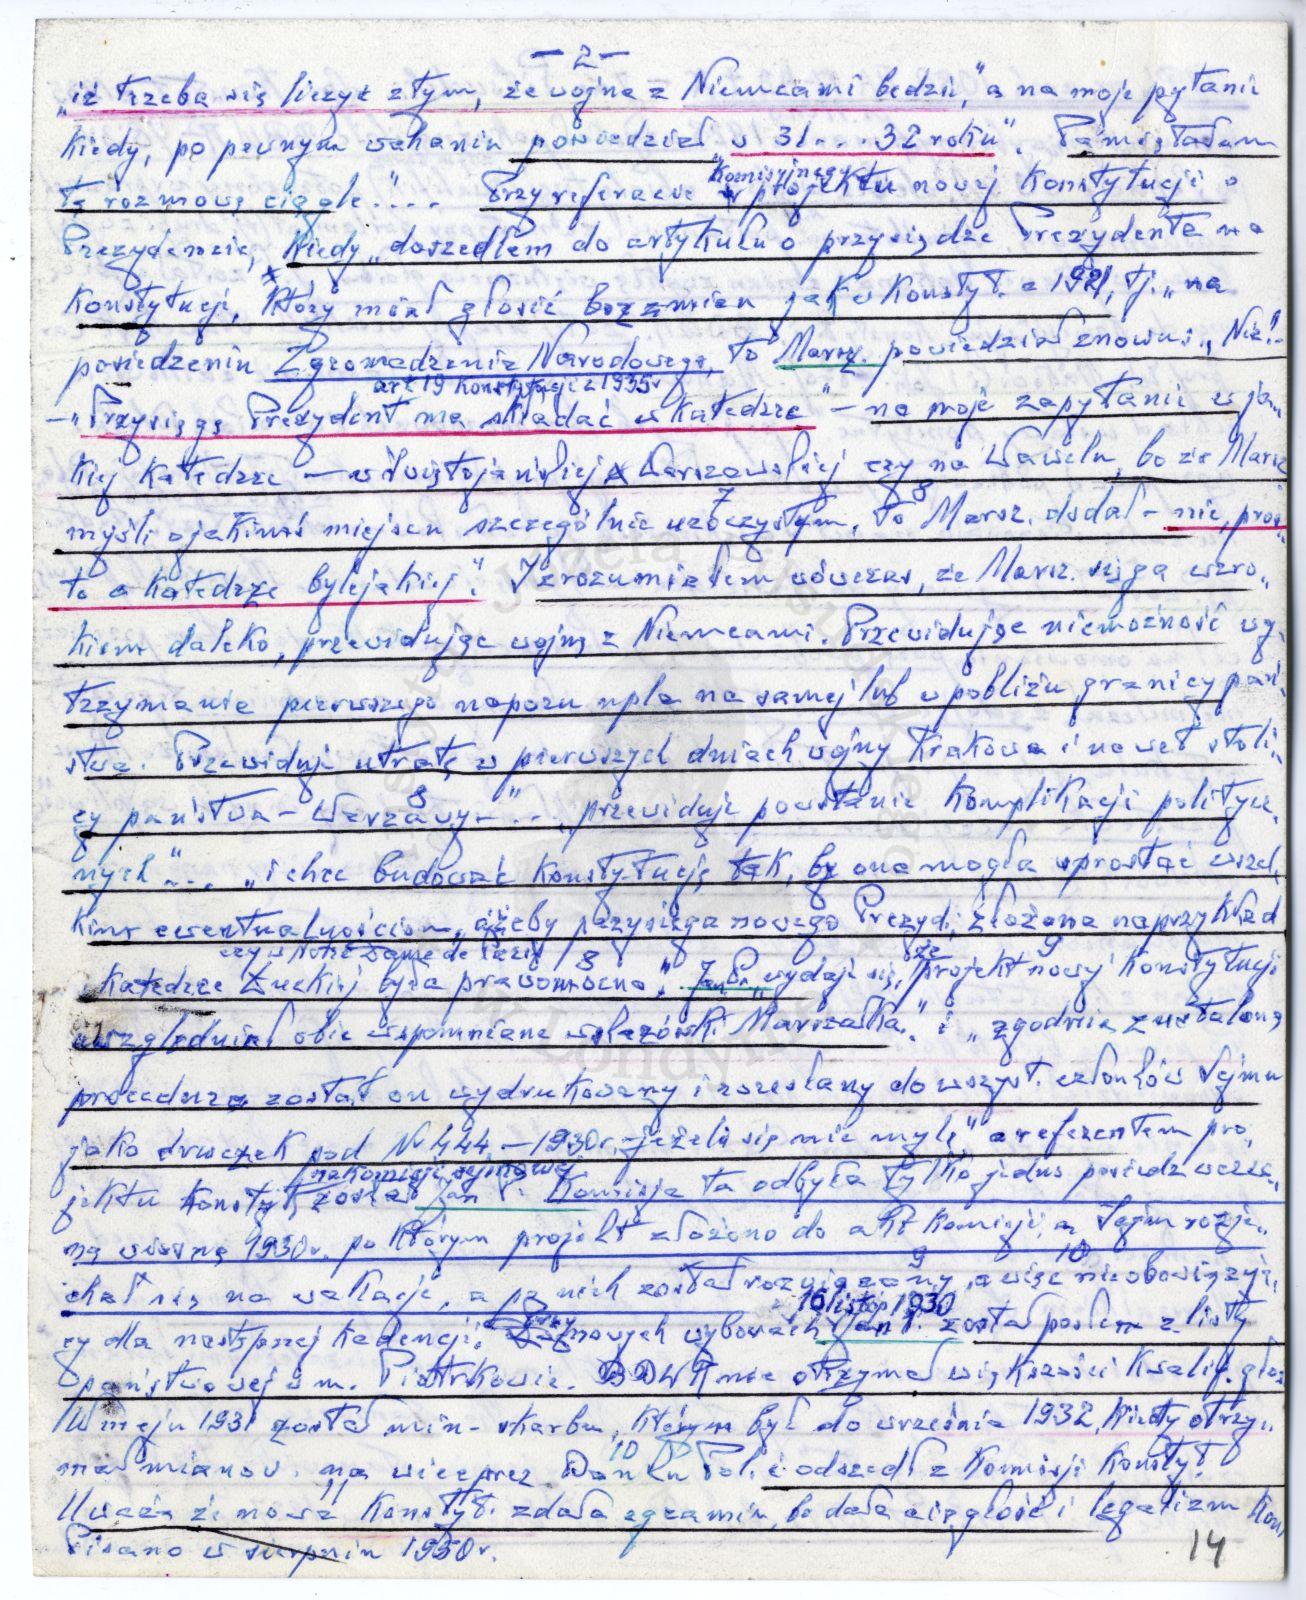 — 2 —
„iż trzeba się liczyć z tym, że wojna z Niemcami będzie," a na moje pytanie
kiedy, po pewnym wahaniu powiedział „w 31....32 roku". Pamiętałem
tę rozmowę ciągle."... Przy referacie
Komisyjnego
projektu nowej Konstytucji o
Prezydencie, kiedy „doszedłem do artykułu o przysiędze Prezydenta na
Konstytucję, który miał głosić bez zmian jak w Konstyt. z 1921, tj. „na
posiedzeniu Zgromadzenia Narodowego, to Marsz. powiedział znowu: „Nie!"
art 19 Konstytucji z 1935r
— „Przysięgę Prezydent ma składać w Katedrze" — na moje zapytanie w ja-
kiej Katedrze — w Świętojańskiej Warszawskiej czy na Wawelu, bo że Marsz
myśli o jakimś miejscu szczególnie uroczystym, to Marsz. dodał — nie, pros
7 8
to w Katedrze bylejakiej." Zrozumiałem wówczas, że Marsz. sięga wzro„
kiem daleko, przewidując wojnę z Niemcami. Przewidując niemożność wy-
trzymania pierwszego naporu npla na samej lub w pobliżu granicy pań-
stwa. Przewiduje utratę w pierwszych dniach wojny Krakowa i nawet stoli-
cy państwa – Warszawy – "... „przewiduje powstanie komplikacji politycz-
8
nych"... „i chce budować Konstytucję tak, by ona mogła sprostać wszel„
kim ewentualnościom, ażeby przysięga nowego Prezyd. złożona na przykład
czy w Notre Dame de Paris 8 że 9
w Katedrze Łuckiej była prawomocna." Jan P. „wydaje się, projekt nowej Konstytucji
uwzględniał obie wspomniane wskazówki Marszałka." i „zgodnie z ustaloną
procedurą został on wydrukowany i rozesłany do wszyst. członków Sejmu
jako druczek pod N 444 – 1930r. – jeżeli się nie mylę", a referentem pro„
na komisji sejmowej
jektu Konstyt. został Jan P. Komisja ta odbyła tylko jedno posiedz wczes„
ną wiosną 1930r. po którym projekt złożono do akt Komisji, a Sejm rozje„
9 10
chał się na wakacje, a po nich został rozwiązany, a więc nieobowiązują„
16 listop 1930
cy dla następnej kadencji. Przy nowych wyborach Jan P. został posłem z listy
państwowej w m. Piotrkowie. BBWR nie otrzymał większości kwalif. głos
W maju 1931 został min. skarbu, którym był do września 1932, kiedy otrzy„
10
mał mianow. na wiceprez Banku Pol. i odszedł z Komisji Konstyt.
Uważa że nowa Konstyt. zdała egzamin, bo dała ciągłość i legalizm Kons
Pisano w sierpniu 1950r.
14